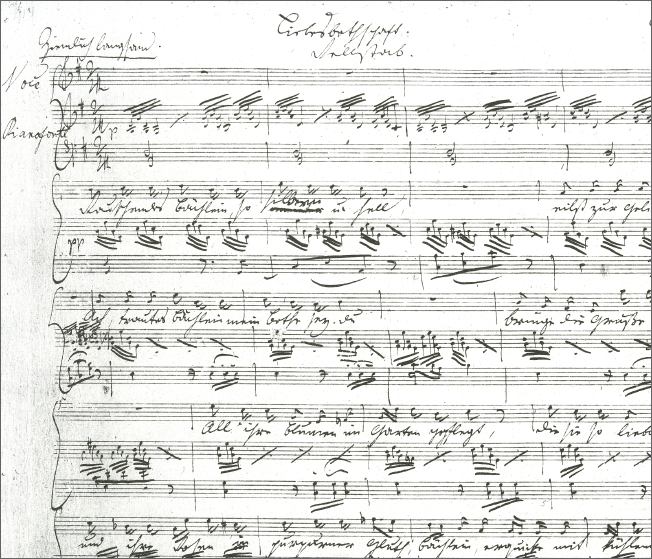 Liebesbothschaft.
Rellstab.
Ziemlich langsam.
Voce
Pianoforte
p
Rauschendes Bächlein, so silbern u. hell, eilst zur Gel
pp
Ach, trautes Bächlein mein Bothe sey du bringe die Grüße
All' ihre Blumen im Garten gepflegt, die sie so lieb
und ihre Rosen in purpurner Gluth Bächlein erquicke mit kühlen